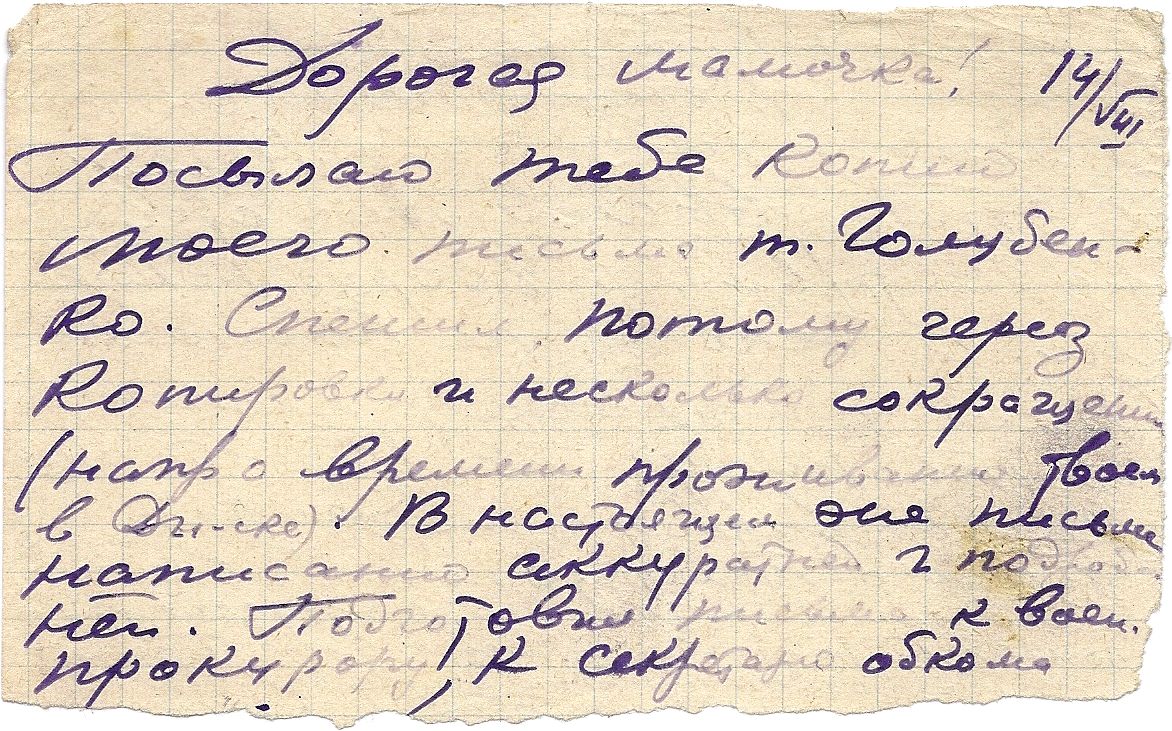 Дорогая мамочка! 14/VIII
Посылаю тебе копию
моего письма т. Голубен-
ко. Спешил потому через
копировку и несколько сокращенно
(напр о времени проживания твоем
в Дн-ске). В настоящем же письме
написано аккуратней и подробн
ней. Подготовил письма к воен.
прокурору, к секретарю обкома